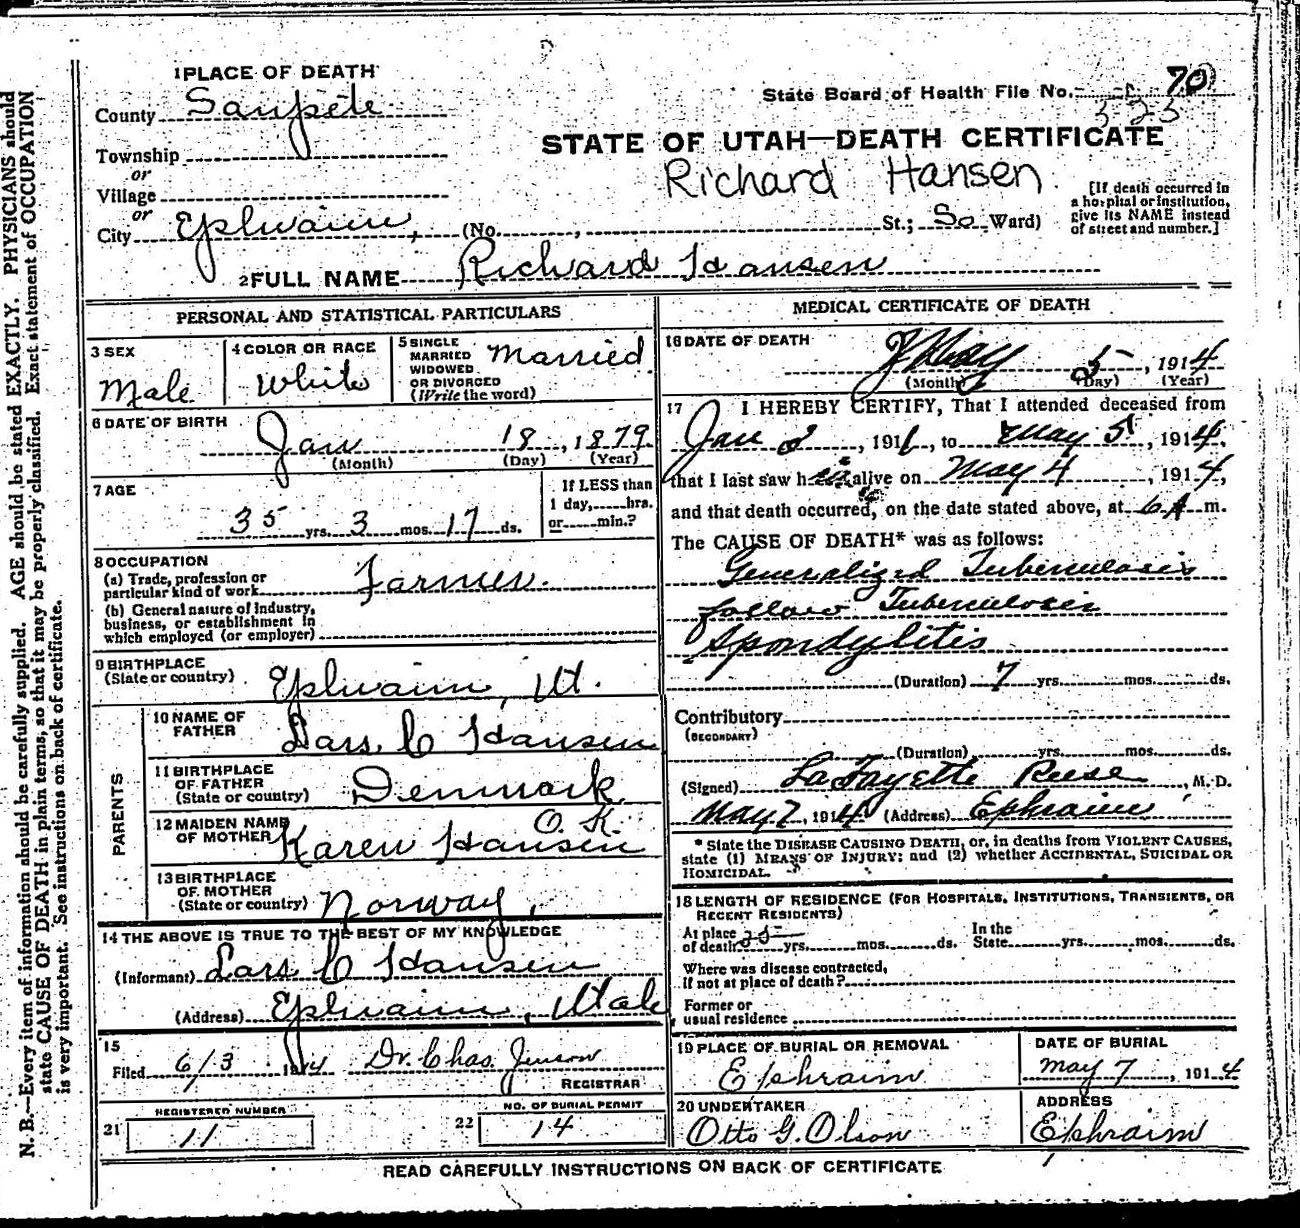 1 PLACE OF DEATH
County Sanpete
Township
or
Village
or
City Ephraim, (No. , St.; So Ward)
State Board of Health File No. 70
323
STATE OF UTAH—DEATH CERTIFICATE
Richard Hansen
[If death occurred in
a hospital or institution,
give its NAME instead
of street and number.]
2 FULL NAME Richard Hansen
PERSONAL AND STATISTICAL PARTICULARS
3 SEX
Male
4 COLOR OR RACE
White
5 SINGLE
MARRIED
WIDOWED
OR DIVORCED
(Write the word)
Married
6 DATE OF BIRTH
Jan 18, 1879
(Month) (Day) (Year)
7 AGE
35 yrs. 3 mos. 17 ds.
If LESS than
1 day, hrs.
or min.?
8 OCCUPATION
(a) Trade, profession or
particular kind of work Farmer.
(b) General nature of Industry,
business, or establishment in
which employed (or employer)
9 BIRTHPLACE
(State or country) Ephraim, Ut.
PARENTS
10 NAME OF
FATHER Lars C Hansen
11 BIRTHPLACE
OF FATHER
(State or country) Denmark
12 MAIDEN NAME
OF MOTHER Karen Hansen O. K.
13 BIRTHPLACE
OF MOTHER
(State or country) Norway,
14 THE ABOVE IS TRUE TO THE BEST OF MY KNOWLEDGE
(Informant) Lars C Hansen
(Address) Ephraim, Utah
15
Filed 6/3 1914 Dr. Chas. Jenson
REGISTRAR
REGISTERED NUMBER
21 11
NO. OF BURIAL PERMIT
22 14
MEDICAL CERTIFICATE OF DEATH
16 DATE OF DEATH
May 5, 1914
(Month) (Day) (Year)
17 I HEREBY CERTIFY, That I attended deceased from
Jan 2, 1911, to May 5, 1914,
that I last saw him alive on May 4, 1914,
and that death occurred, on the date stated above, at 6 A m.
The CAUSE OF DEATH* was as follows:
Generalized Tuberculosis
follow Tuberculosis
Spondylitis
(Duration) 7 yrs. mos. ds.
Contributory
(SECONDARY)
(Duration) yrs. mos. ds.
(Signed) LaFayette Reese, M.D.
May 7, 1914 (Address) Ephraim
* State the DISEASE CAUSING DEATH, or, in deaths from VIOLENT CAUSES,
state (1) MEANS OF INJURY; and (2) whether ACCIDENTAL, SUICIDAL OR
HOMICIDAL.
18 LENGTH OF RESIDENCE (FOR HOSPITALS, INSTITUTIONS, TRANSIENTS, OR
RECENT RESIDENTS)
At place
of death 35 yrs. mos. ds.
In the
State yrs. mos. ds.
Where was disease contracted,
if not at place of death?
Former or
usual residence
19 PLACE OF BURIAL OR REMOVAL
Ephraim
DATE OF BURIAL
May 7, 1914
20 UNDERTAKER
Otto G. Olson
ADDRESS
Ephraim
READ CAREFULLY INSTRUCTIONS ON BACK OF CERTIFICATE
N. B.—Every item of information should be carefully supplied. AGE should be stated EXACTLY. PHYSICIANS should
state CAUSE OF DEATH in plain terms, so that it may be properly classified. Exact statement of OCCUPATION
is very important. See instructions on back of certificate.